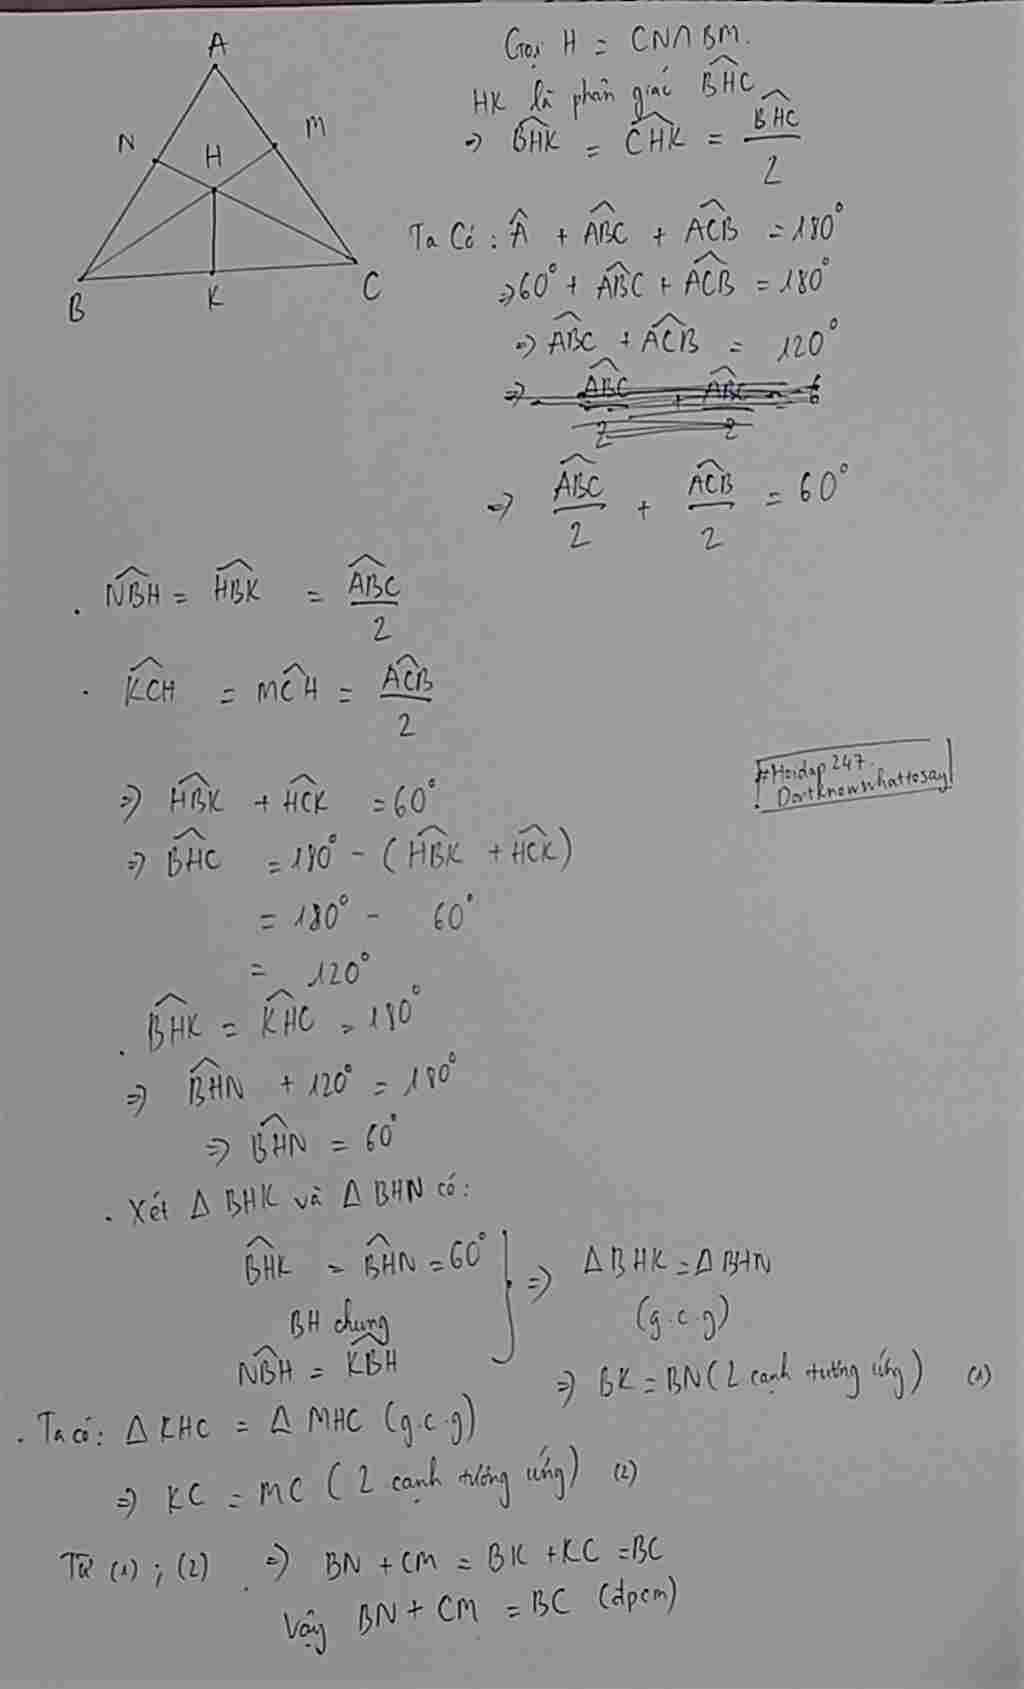 A
N
M
H
B
K
C
Gọi H = CN∩BM.
HK là phân giác BHC
=> BHK = CHK = BHC/2
Ta Có : Â + ABC + ACB = 180°
=> 60° + ABC + ACB = 180°
=> ABC + ACB = 120°
=> ABC/2 + ACB/2 = 60°
. NBH = HBK = ABC/2
. KCH = MCH = ACB/2
=> HBK + HCK = 60°
=> BHC = 180° - (HBK + HCK)
= 180° - 60°
= 120°
. BHK = KHC = 180°
=> BHN + 120° = 180°
=> BHN = 60°
. Xét Δ BHK và Δ BHN có:
BHK = BHN = 60°
BH chung
NBH = KBH
} => Δ BHK = Δ BHN
(g.c.g)
=> BK = BN (2 cạnh tương ứng) (1)
. Ta có: Δ KHC = Δ MHC (g.c.g)
=> KC = MC (2 cạnh tương ứng) (2)
Từ (1) ; (2) => BN + CM = BK + KC = BC
Vậy BN + CM = BC (đpcm)
#Hoidap247.
Dontknowwhattosay